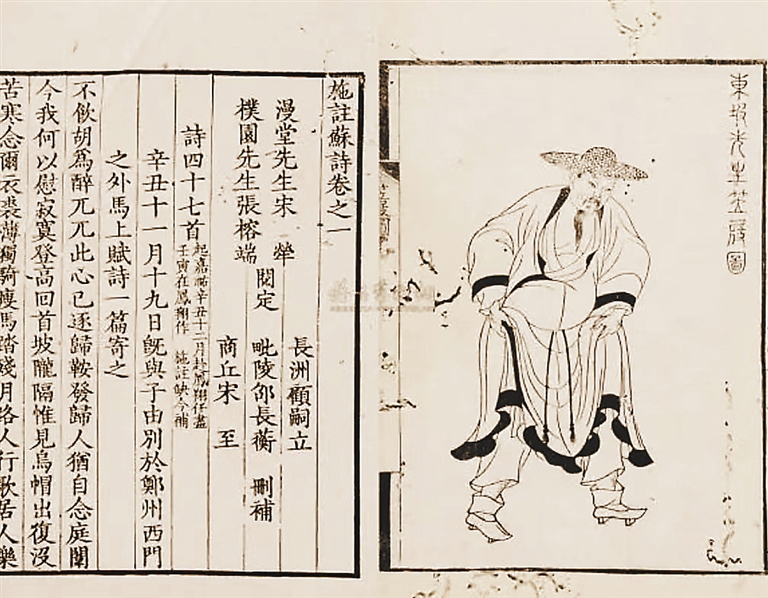 東坡先生笠屐圖
施註蘇詩卷之一
漫堂先生宋犖
樸園先生張榕端
閱定
長洲顧嗣立
毗陵邵長蘅
商丘宋至
刪補
詩四十七首
起嘉祐辛丑十二月赴鳳翔任盡
壬寅在鳳翔作 施註缺今補
辛丑十一月十九日既與子由別於鄭州西門
之外馬上賦詩一篇寄之
不飲胡為醉兀兀此心已逐歸鞍發歸人猶自念庭闈
今我何以慰寂寞登高回首坡隴隔惟見烏帽出復沒
苦寒念爾衣裘薄獨騎瘦馬踏殘月路人行歌居人樂